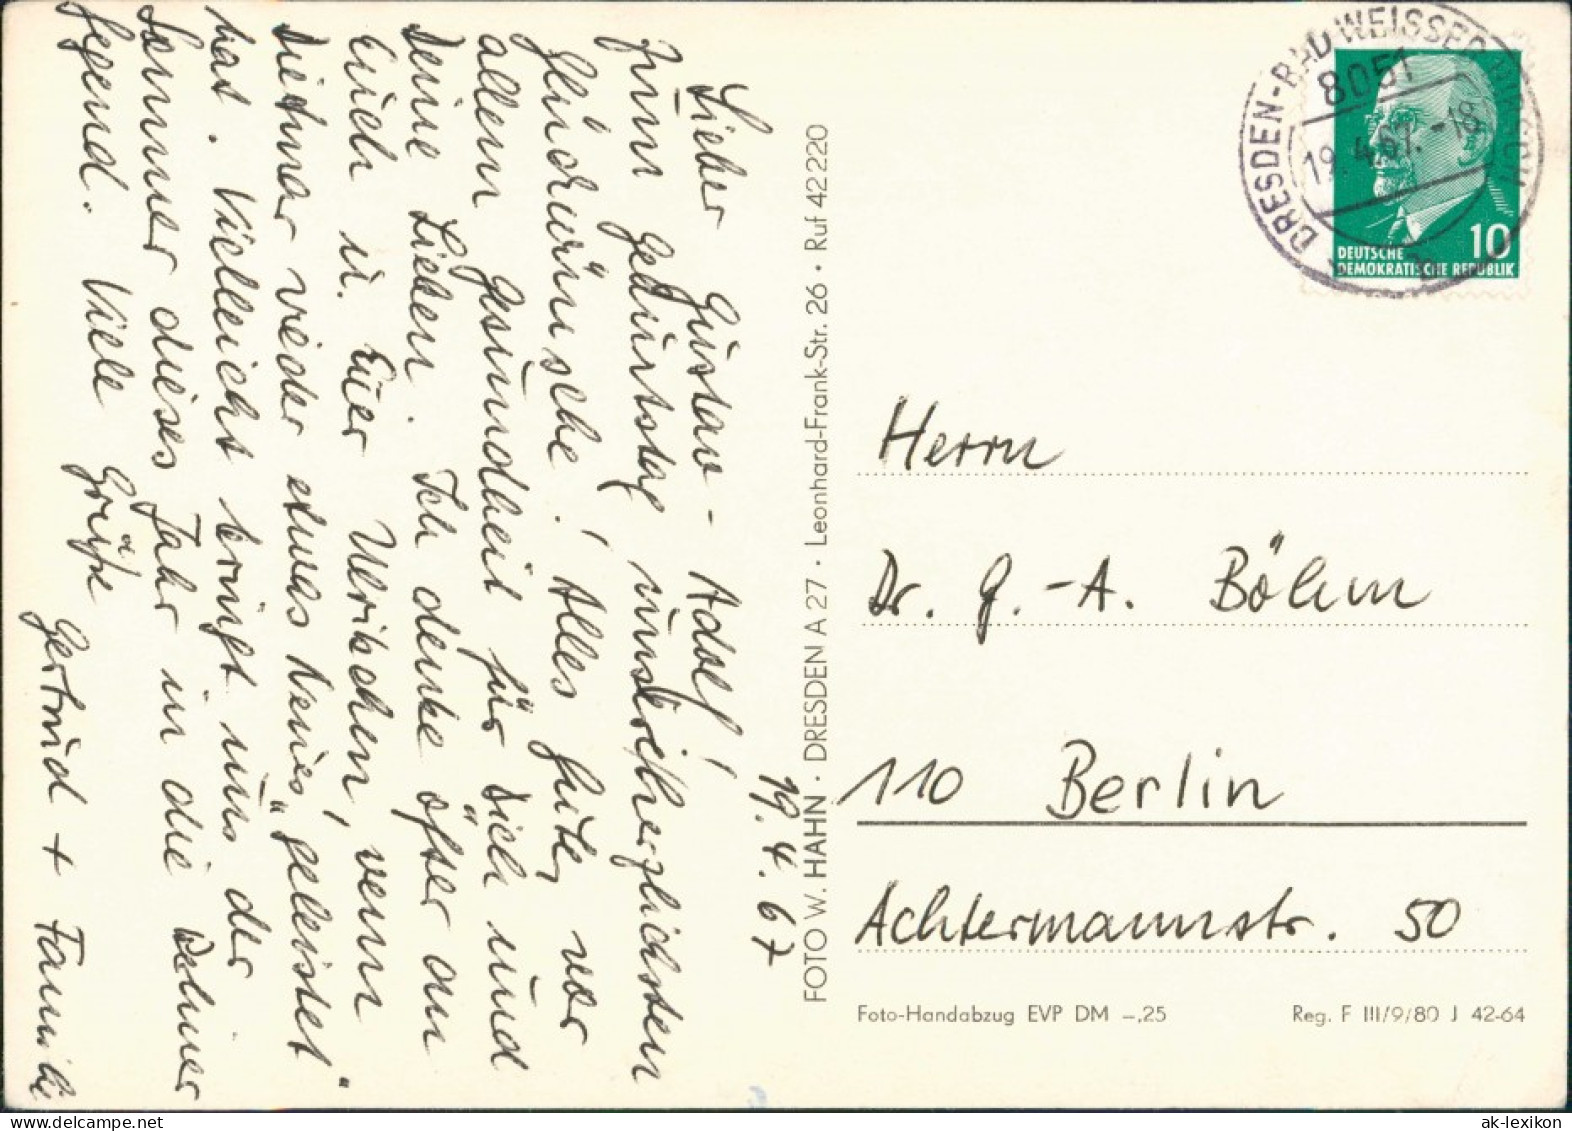 19.4.67
Lieber Gustav-Adolf!
Zum Geburtstag unsere herzlichsten
Glückwünsche! Alles Gute, vor
allem Gesundheit für Dich und
Deine Lieben. Ich denke öfter an
Euch u. Euer Ulrichchen, wenn
Dietmar wieder etwas Neues „geleistet"
hat. Vielleicht bringt uns der
Sommer dieses Jahr in die
Gegend. Viele Grüße
Gertrud + Familie
FOTO W. HAHN · DRESDEN A 27 · Leonhard-Frank-Str. 26 · Ruf 42220
DRESDEN-BAD WEISSER HIRSCH
8051
19.4.67.-18
10
DEUTSCHE
DEMOKRATISCHE REPUBLIK
Herrn
Dr. G.-A. Böhm
110 Berlin
Achtermannstr. 50
Foto-Handabzug EVP DM –,25
Reg. F III/9/80 J 42-64
ak-lexikon